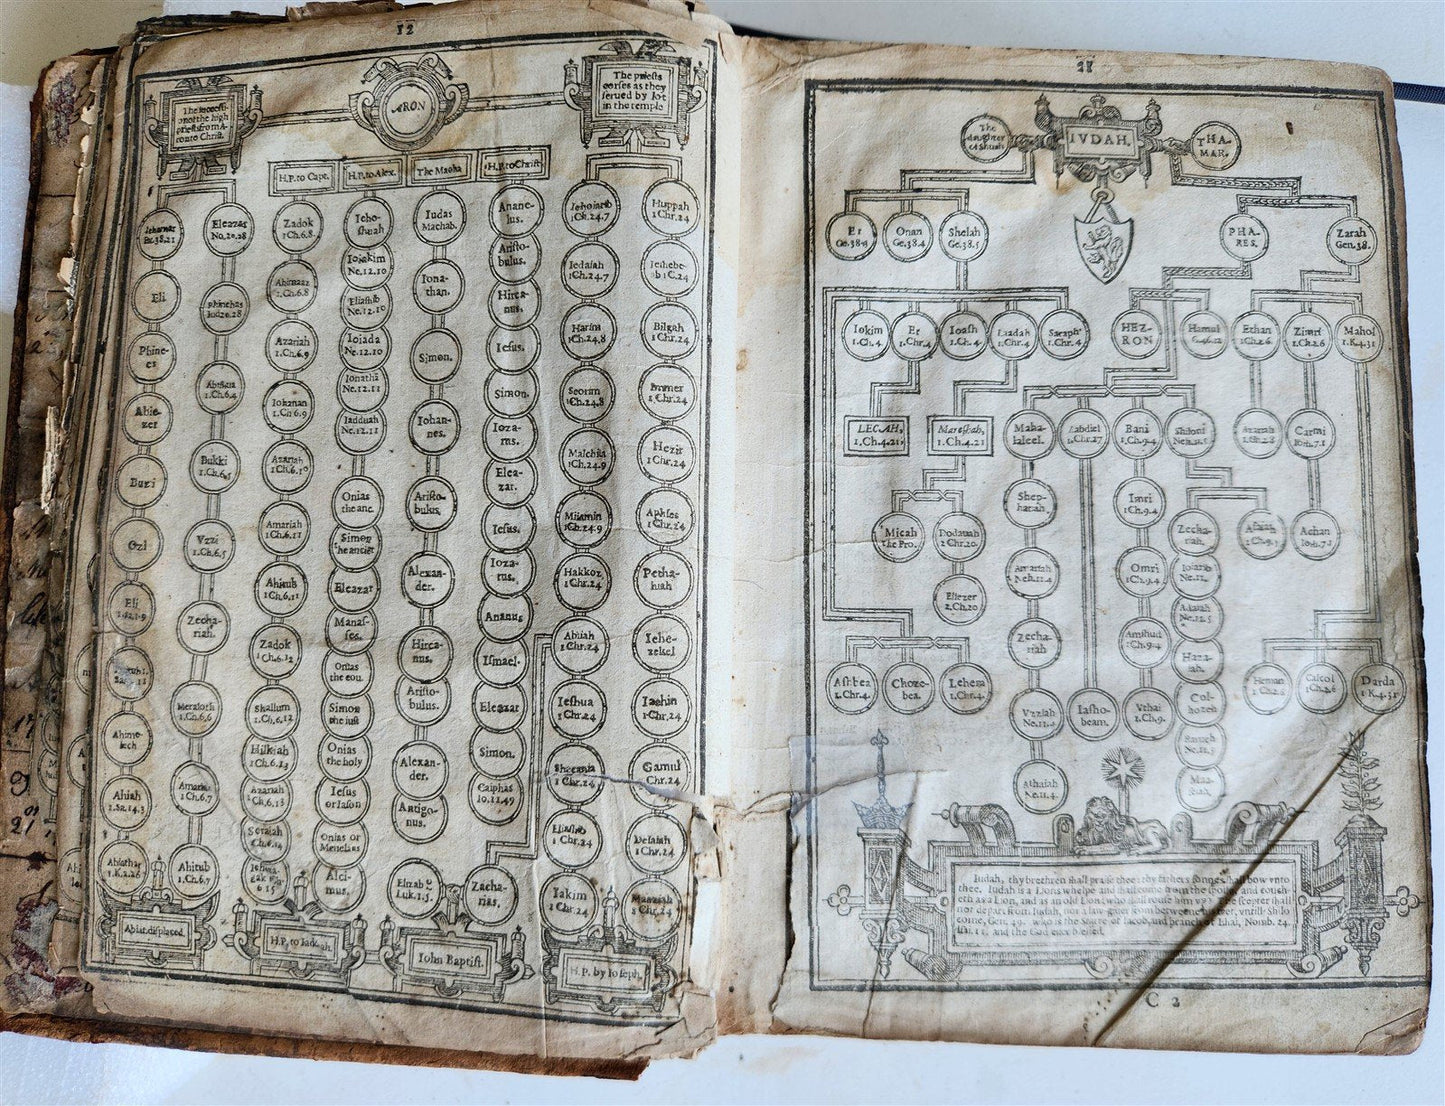 12
The
priests from A-
ron to Christ.
ARON
The priests
corses as they
serued by lot
in the temple
H.P. to Capt.
H.P. to Alex.
The Macha
H.P. to Christ
Ex.38.21
Eli
Phine-
es
Abie-
zer
Buzi
Ozi
Eli
Ahime-
lech
Ahiah
1.Sa.14.3
Abiathar
1.K.2.26
Abiat. displaced.
Eleazar
No.20.28
Phinehas
Iud.20.28
Abishua
1.Ch.6.4
Bukki
1.Ch.6.5
Vzzi
1.Ch.6.5
Zecha-
riah.
Meraioth
1.Ch.6.6
Amariah
1.Ch.6.7
Ahitub
1.Ch.6.7
Zadok
1 Ch.6.8
Ahimaaz
1.Ch.6.8
Azariah
1.Ch.6.9
Iohanan
1.Ch.6.9
Azariah
1.Ch.6.10
Amariah
1.Ch.6.11
Ahitub
1.Ch.6,11
Zadok
1 Ch.6.12
Shallum
1.Ch.6.12
Hilkiah
1.Ch.6.13
Azariah
1.Ch.6.13
Seraiah
1.Ch.6.14
Ieho-
shuah
Ioiakim
Ne.12.10
Eliashib
Ne.12.10
Ioiada
Ne.12.10
Ionathā
Ne.12.11
Iadduah
Ne.12.11
Onias
the anc.
Simon
the anciet
Eleazar
Manas-
ses.
Onias
the cou.
Simon
the iust
Onias
the holy
Iesus
or Iason
Onias or
Menelaus
Alci-
mus.
H.P. to Iadduah.
Iudas
Machab.
Iona-
than.
Simon.
Iohan-
nes.
Aristo-
bulus.
Alexan-
der.
Hirca-
nus.
Aristo-
bulus.
Alexan-
der.
Antigo-
nus.
Anane-
lus.
Aristo-
bulus.
Hirca-
nus.
Iesus.
Simon.
Ioza-
rus.
Elea-
zar.
Iesus.
Ioza-
rus.
Ananus
Ismael.
Eleazar
Simon.
Caiphas
Io.11.49
Elizab
Luk.1.5.
Zacha-
rias.
Iohn Baptist.
Iehoiarib
1Ch.24.7
Iedaiah
1Ch.24.7
Harim
1Ch.24,8
Seorim
1Ch.24.8
Malchiia
1Ch.24.9
Miiamin
1Ch.24.9
Hakkoz
1Chr.24
Abiiah
1 Chr.24
Ieshua
1 Chr.24
Shecania
1 Chr.24
Eliashib
1 Chr.24
Iakim
1 Chr.24
H.P. by Ioseph.
Huppah
1 Chr.24
Ieshebe-
ab 1 C.24
Bilgah
1 Chr.24
Immer
1.Chr.24
Hezir
1 Chr.24
Aphses
1 Chr.24
Petha-
hiah
Iehe-
zekel
Iachin
1 Chr.24
Gamul
1 Chr.24
Delaiah
1 Chr.24
Maaziah
1 Chr.24
The
daughter
of Shuah
IVDAH.
THA-
MAR.
Er
Ge.38.3
Onan
Ge.38.4
Shelah
Ge.38.5
PHA-
RES.
Zarah
Gen.38.
Iokim
1.Ch.4
Er
1.Chr.4
Ioash
1.Ch.4
Laadah
1.Chr.4
Saraph
1.Chr.4
HEZ-
RON
Hamul
Ethan
1 Ch.2.6
Zimri
1 Ch.2.6
Mahol
1.K.4.31
LECAH,
1.Ch.4.21,
Mareshah,
1.Ch.4.21
Maha-
laleel.
Zabdiel
1.Chr.27
Bani
1.Ch.9.4
Shiloni
Ne.11.5
Azariah
1.Ch.2.8
Carmi
Iosh.7.1
Micah
the Pro.
Dodauah
2 Chr.20.
Eliezer
2.Ch.20
Shep-
hatiah.
Amariah
Neh.11.4
Zecha-
riah
Vzziah
Ne.11.4
Athaiah
Ne.11.4.
Iasho-
beam.
Imri
1 Ch.9.4
Omri
1.Ch.9.4
Amihud
1 Ch.9.4
Vthai
1.Ch.9.
Zecha-
riah.
Ioiarib
Ne.11.
Adaiah
Ne.11.5
Haza-
iah.
Col-
hozeh
Baruch
Ne.11.5
Maa-
seiah.
Achan
Iosh.7.1
Ashbea
1.Chr.4.
Choze-
bea.
Lehem
1.Chr.4.
Heman
1 Ch.2.6
Calcol
1 Ch.2.6
Darda
1 K.4.31
Iudah, thy brethren shall praise thee: thy fathers sonnes shall bow vnto
thee. Iudah is a Lions whelpe and shall come from the spoile, and couch-
eth as a Lion, and as an old Lion; who shall rouse him vp? The scepter shall
not depart from Iudah, nor a law-giuer from betweene his feet, vntill Shilo
come, Gen. 49. who is the starre of Iacob, and branch of Ishai, Nomb. 24.
Isa. 11. and the God euer blessed.
C 2